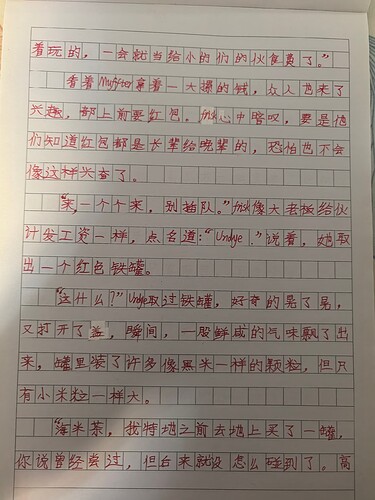 着玩的，一会就当给小的们的伙食费了。”
看着Muffter拿着一大摞的钱，众人也来了
兴趣，都上前要红包。frisk心中暗叹，要是他
们知道红包都是长辈给晚辈的，恐怕也不会
像这样兴奋了。
“来，一个个来，别插队。”frisk像大老板给伙
计发工资一样，点名道：“Undye。”说着，她取
出一个红色铁罐。
“这什么？”Undye取过铁罐，好奇的晃了晃，
又打开了盖，瞬间，一股鲜咸的气味飘了出
来，罐里装了许多像黑米一样的颗粒，但只
有小米粒一样大。
“海米茶，我特地之前去地上买了一罐，
你说曾经尝过，但后来就没怎么碰到了。高